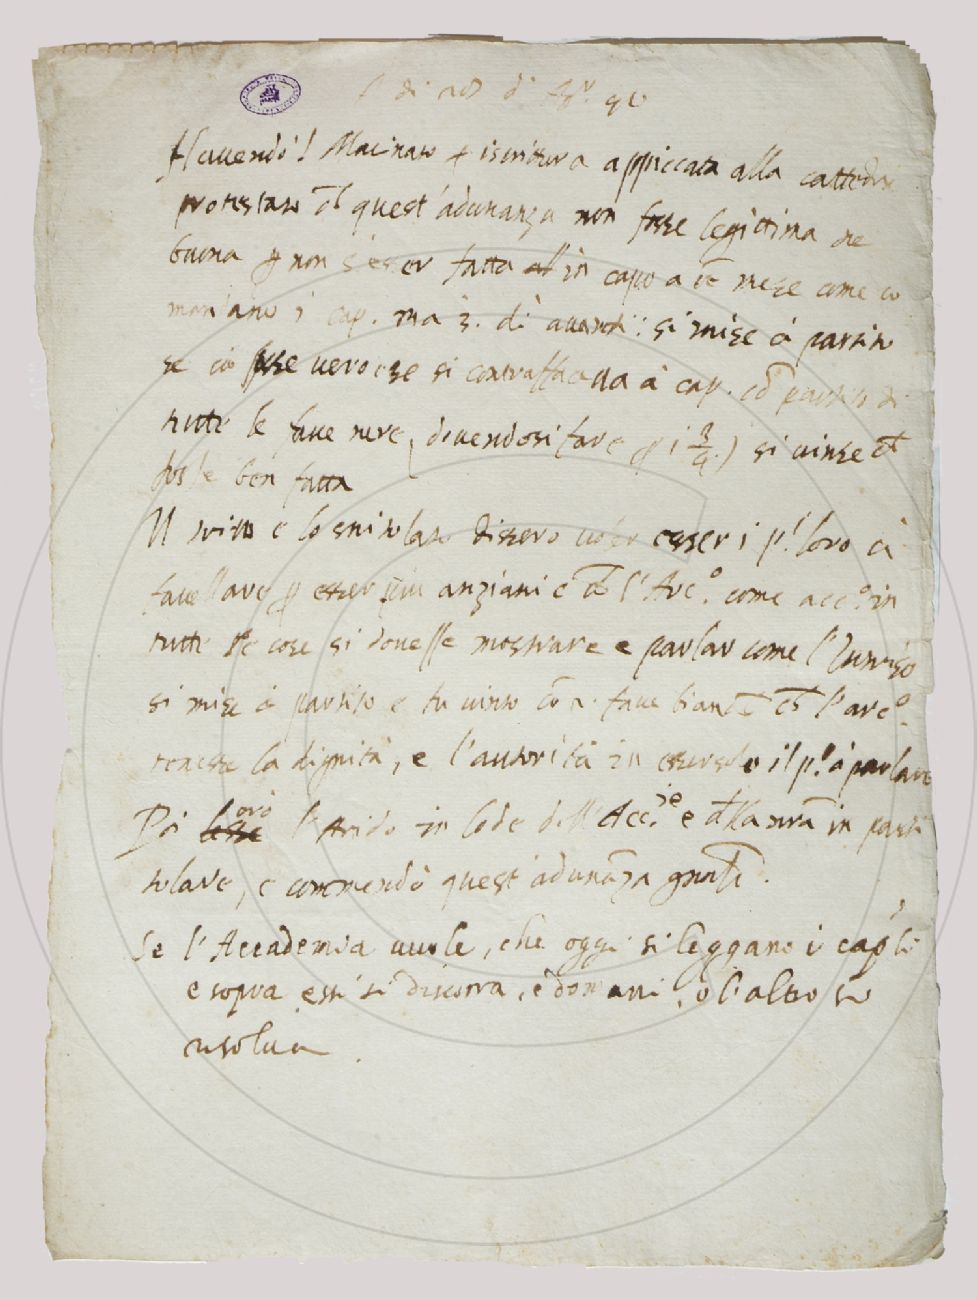 Havendo il Macinato p iscrittura appiccata alla cattedra
protestato ch quest'adunanza non fosse legittima ne
buona p non s'esser fatta in capo a un mese come co
mandano i cap. ma 3. dì avanti: si mise à partito
se ciò fosse vero e se si contraffaceva à cap. partito di
tutte le fave nere (devendosi fare p i 3/4.) si vinse ch
fosse ben fatta
Il trito e lo smit olato dissero voler esser i p.i loro à
favellare p esser più anziani e ch l'Arc.o come acc.o in
tutte le cose si dovesse mostrare e parlar come l'
si mise à partito e fu vinto fave bianche ch l'arc.o
tenesse la dignità, e l'autorità in essendo il p.o à parlare
Poi orò l'Arido in lode dell'Acc.ie e in parti
tolare, e commendò quest'adunanza
Se l'Accademia vuole, che oggi si leggano i cap.li
e sopra essi si discorra, e domani, ò l'altro si
risolva.